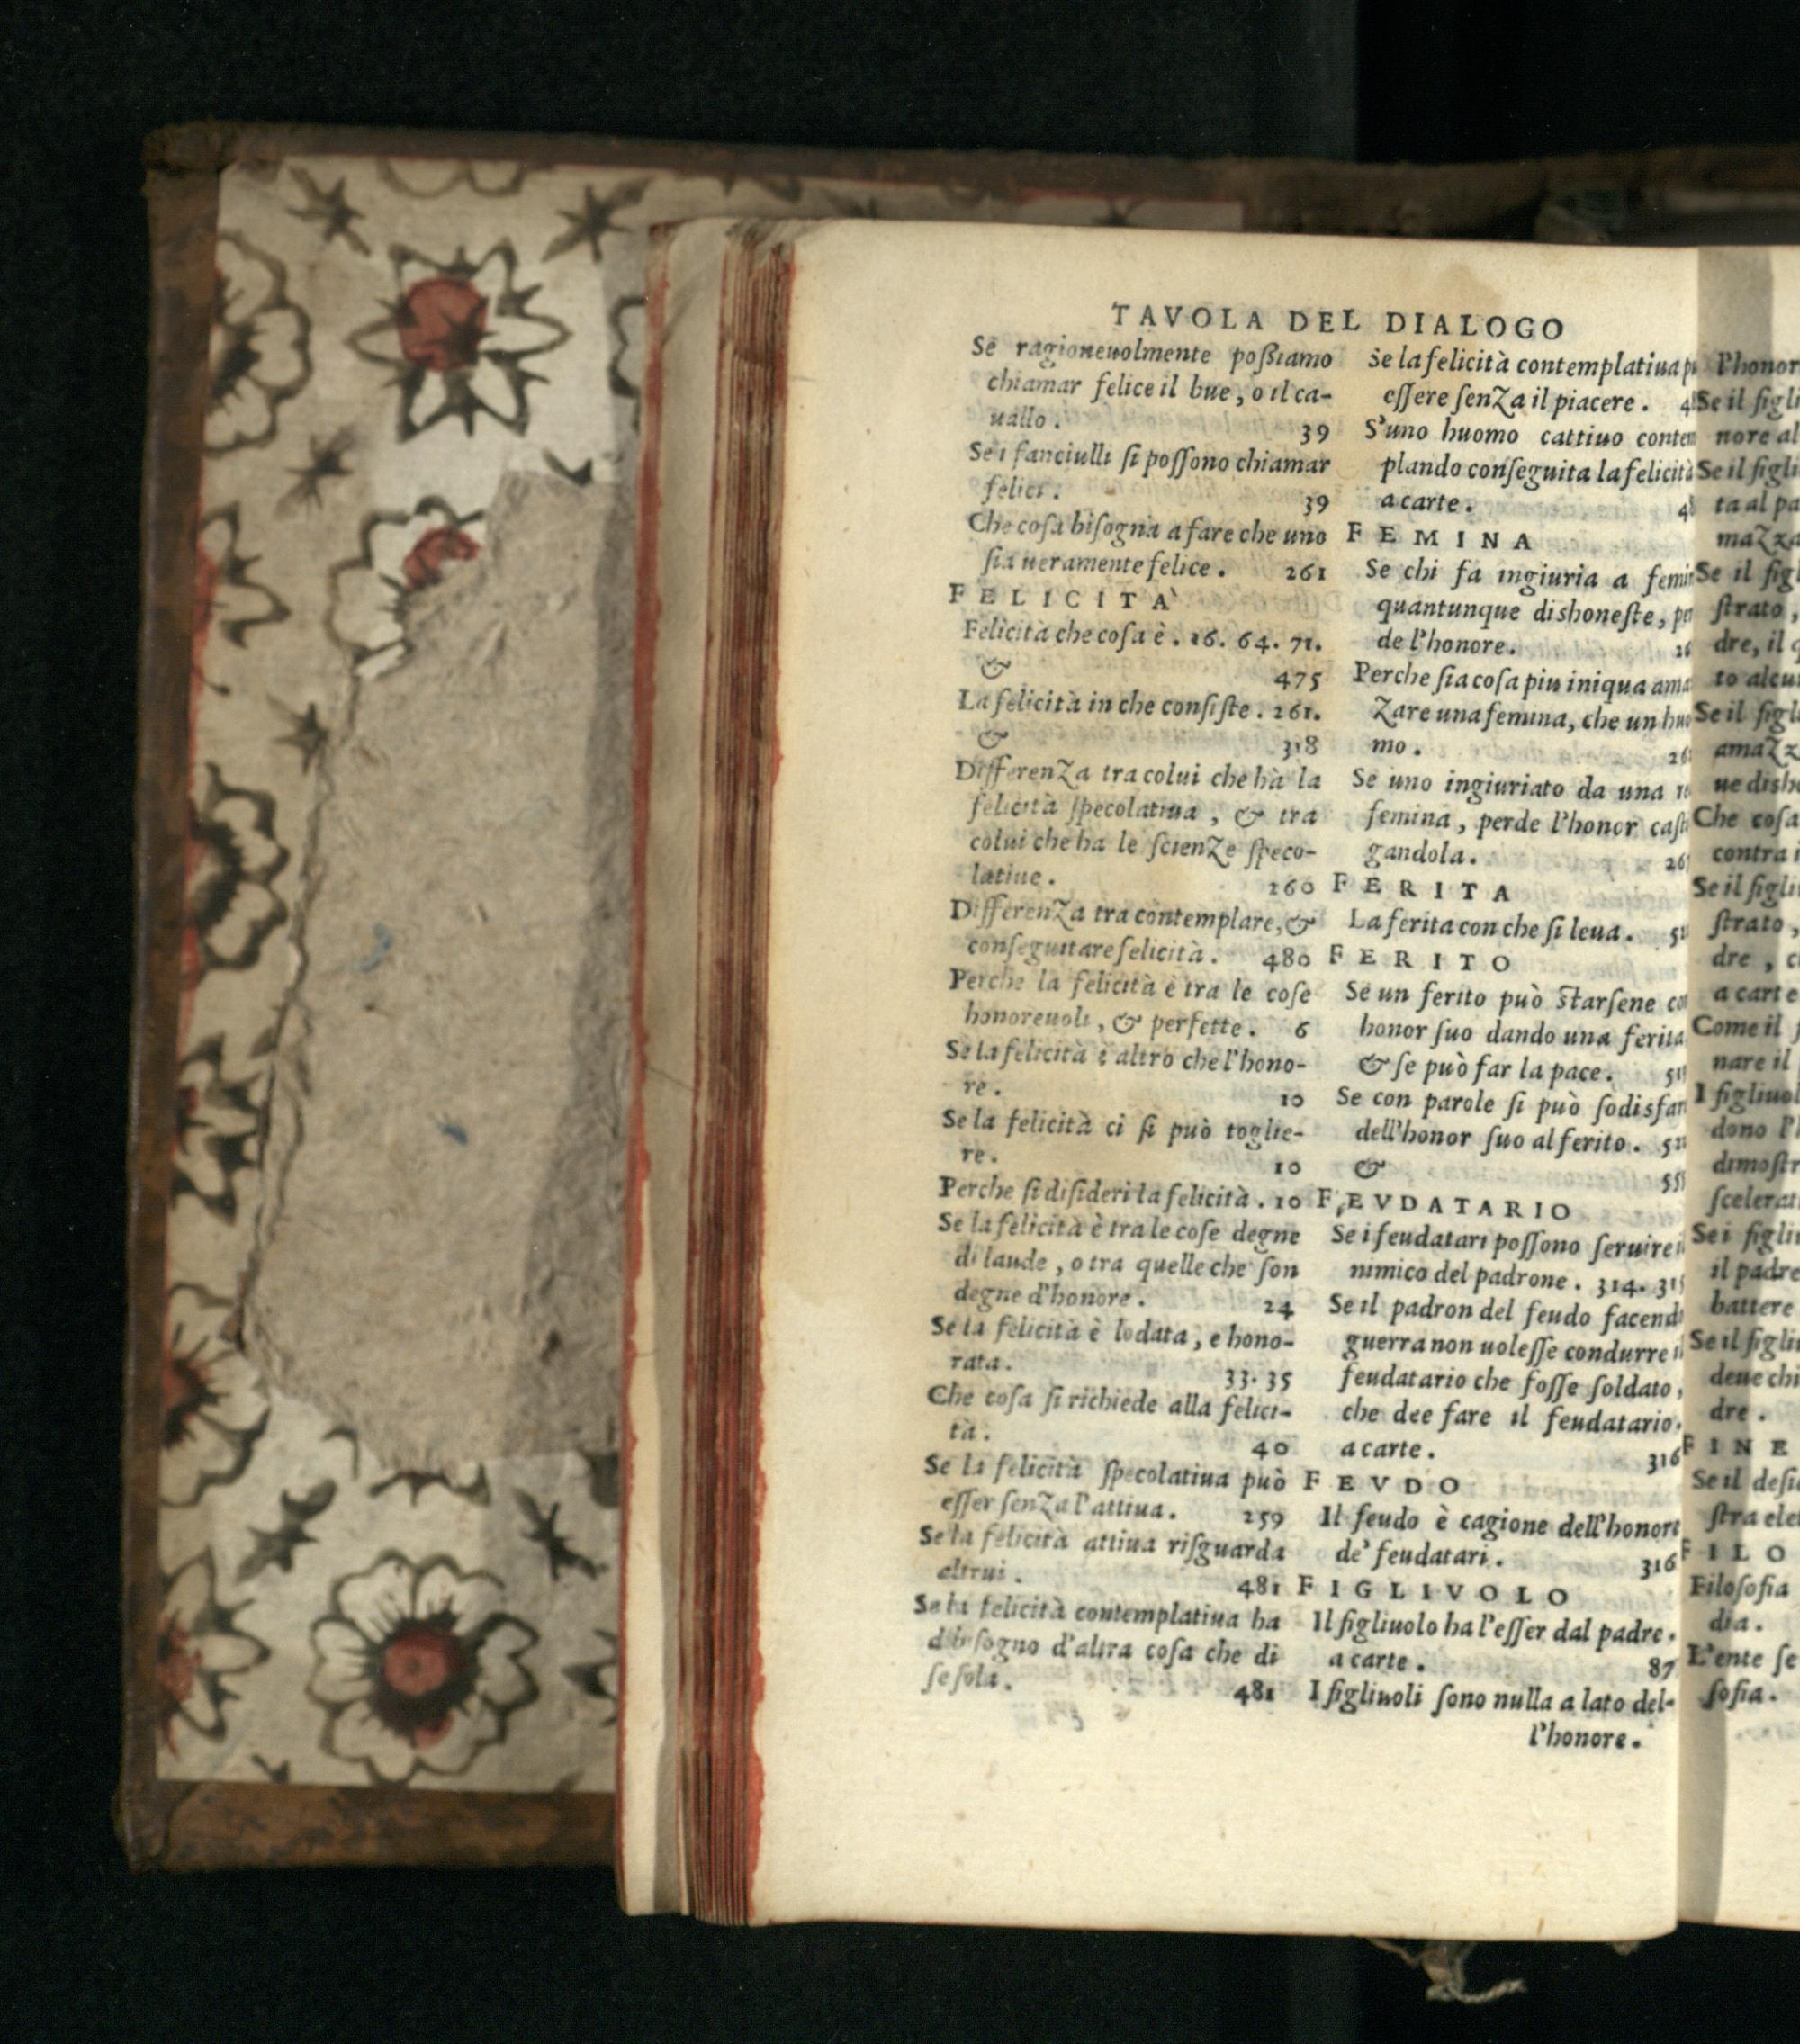 TAVOLA DEL DIALOGO
Se ragioneuolmente poßiamo
chiamar felice il bue, o il ca-
uallo. 39
Se i fanciulli ſi poſſono chiamar
felici. 39
Che coſa biſogna a fare che uno
ſia ueramente felice. 261
FELICITA`
Felicità che coſa è. 16. 64. 71.
& 475
La felicità in che conſiſte. 261.
& 318
Differenza tra colui che hà la
felicità ſpecolatiua, & tra
colui che ha le ſcienze ſpeco-
latiue. 260
Differenza tra contemplare, &
conſeguitare felicità. 480
Perche la felicità è tra le coſe
honoreuoli, & perfette. 6
Se la felicità è altro che l'hono-
re. 10
Se la felicità ci ſi può toglie-
re. 10
Perche ſi diſideri la felicità. 10
Se la felicità è tra le coſe degne
di laude, o tra quelle che ſon
degne d'honore. 24
Se la felicità è lodata, e hono-
rata. 33. 35
Che coſa ſi richiede alla felici-
tà. 40
Se la felicità ſpecolatiua può
eſſer ſenza l'attiua. 259
Se la felicità attiua riſguarda
altrui. 481
Se la felicità contemplatiua ha
di biſogno d'altra coſa che di
ſe ſola. 481
Se la felicità contemplatiua
eſſere ſenza il piacere.
S'uno huomo cattiuo contem
plando conſeguita la felicità
a carte.
FEMINA
Se chi fa ingiuria a
quantunque dishoneſte,
de l'honore.
Perche ſia coſa piu iniqua
zare una femina, che un
mo.
Se uno ingiuriato da una
femina, perde l'honor
gandola.
FERITA
La ferita con che ſi leua.
FERITO
Se un ferito può ſtarſene
honor ſuo dando una ferita
& ſe può far la pace.
Se con parole ſi può
dell'honor ſuo al ferito.
&
FEVDATARIO
Se i feudatari poſſono ſeruire
nimico del padrone. 314.
Se il padron del feudo
guerra non uoleſſe condurre
feudatario che foſſe ſoldato,
che dee fare il feudatario.
a carte. 316
FEVDO
Il feudo è cagione dell'honore
de' feudatari. 316
FIGLIVOLO
Il figliuolo ha l'eſſer dal padre.
a carte. 87
I figliuoli ſono nulla a lato del-
l'honore.
Se il
nore al
Se il
ta al
Se il
ſtrato,
dre, il
to
Se il
ue
Che coſa
contra
Se il
ſtrato,
dre,
a carte
Come il
nare il
I
dono
Se i
il padre
battere
Se il
deue chi
dre.
FINE
Se il
ſtra
FILO
Filoſofia
dia.
L'ente ſe
ſofia.